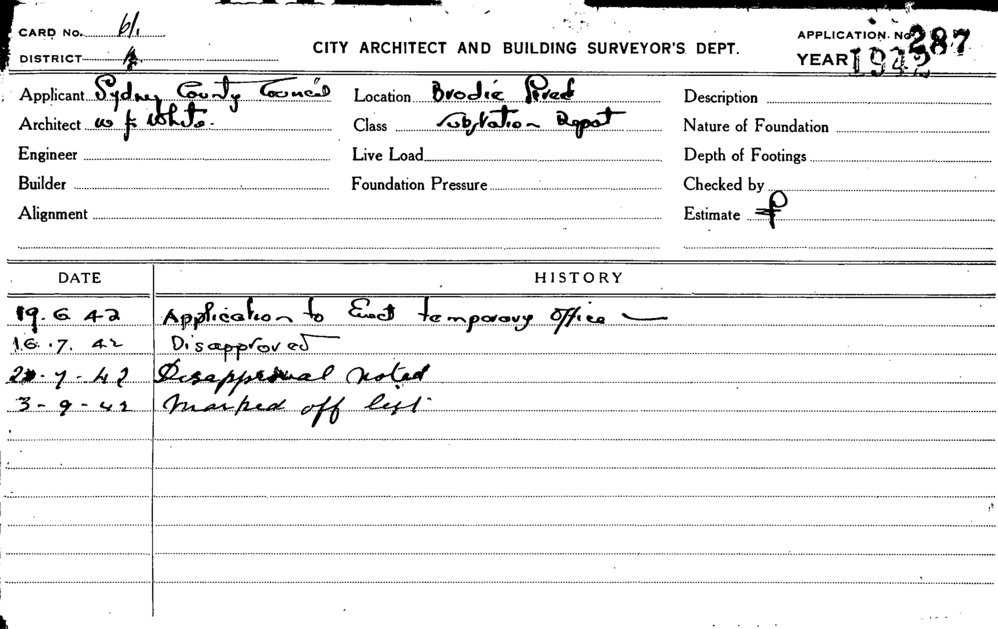 CARD No. 6/1
APPLICATION. No 287
CITY ARCHITECT AND BUILDING SURVEYOR'S DEPT.
DISTRICT
YEAR 1942
Applicant Sydney County Council Location Brodie Street Description
Architect W F White. Class Substation Depot Nature of Foundation
Engineer Live Load Depth of Footings
Builder Foundation Pressure Checked by
Alignment Estimate £
DATE HISTORY
19. 6 42 Application to Erect temporary office
16. 7. 42 Disapproved
- 7 - 42 Disapproval noted
3 - 9 - 42 Marked off list